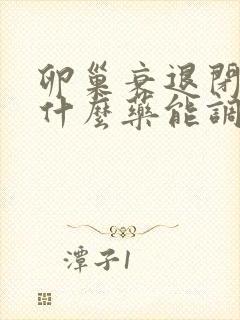 卵巢衰退閉
什麼藥能調
潭子1